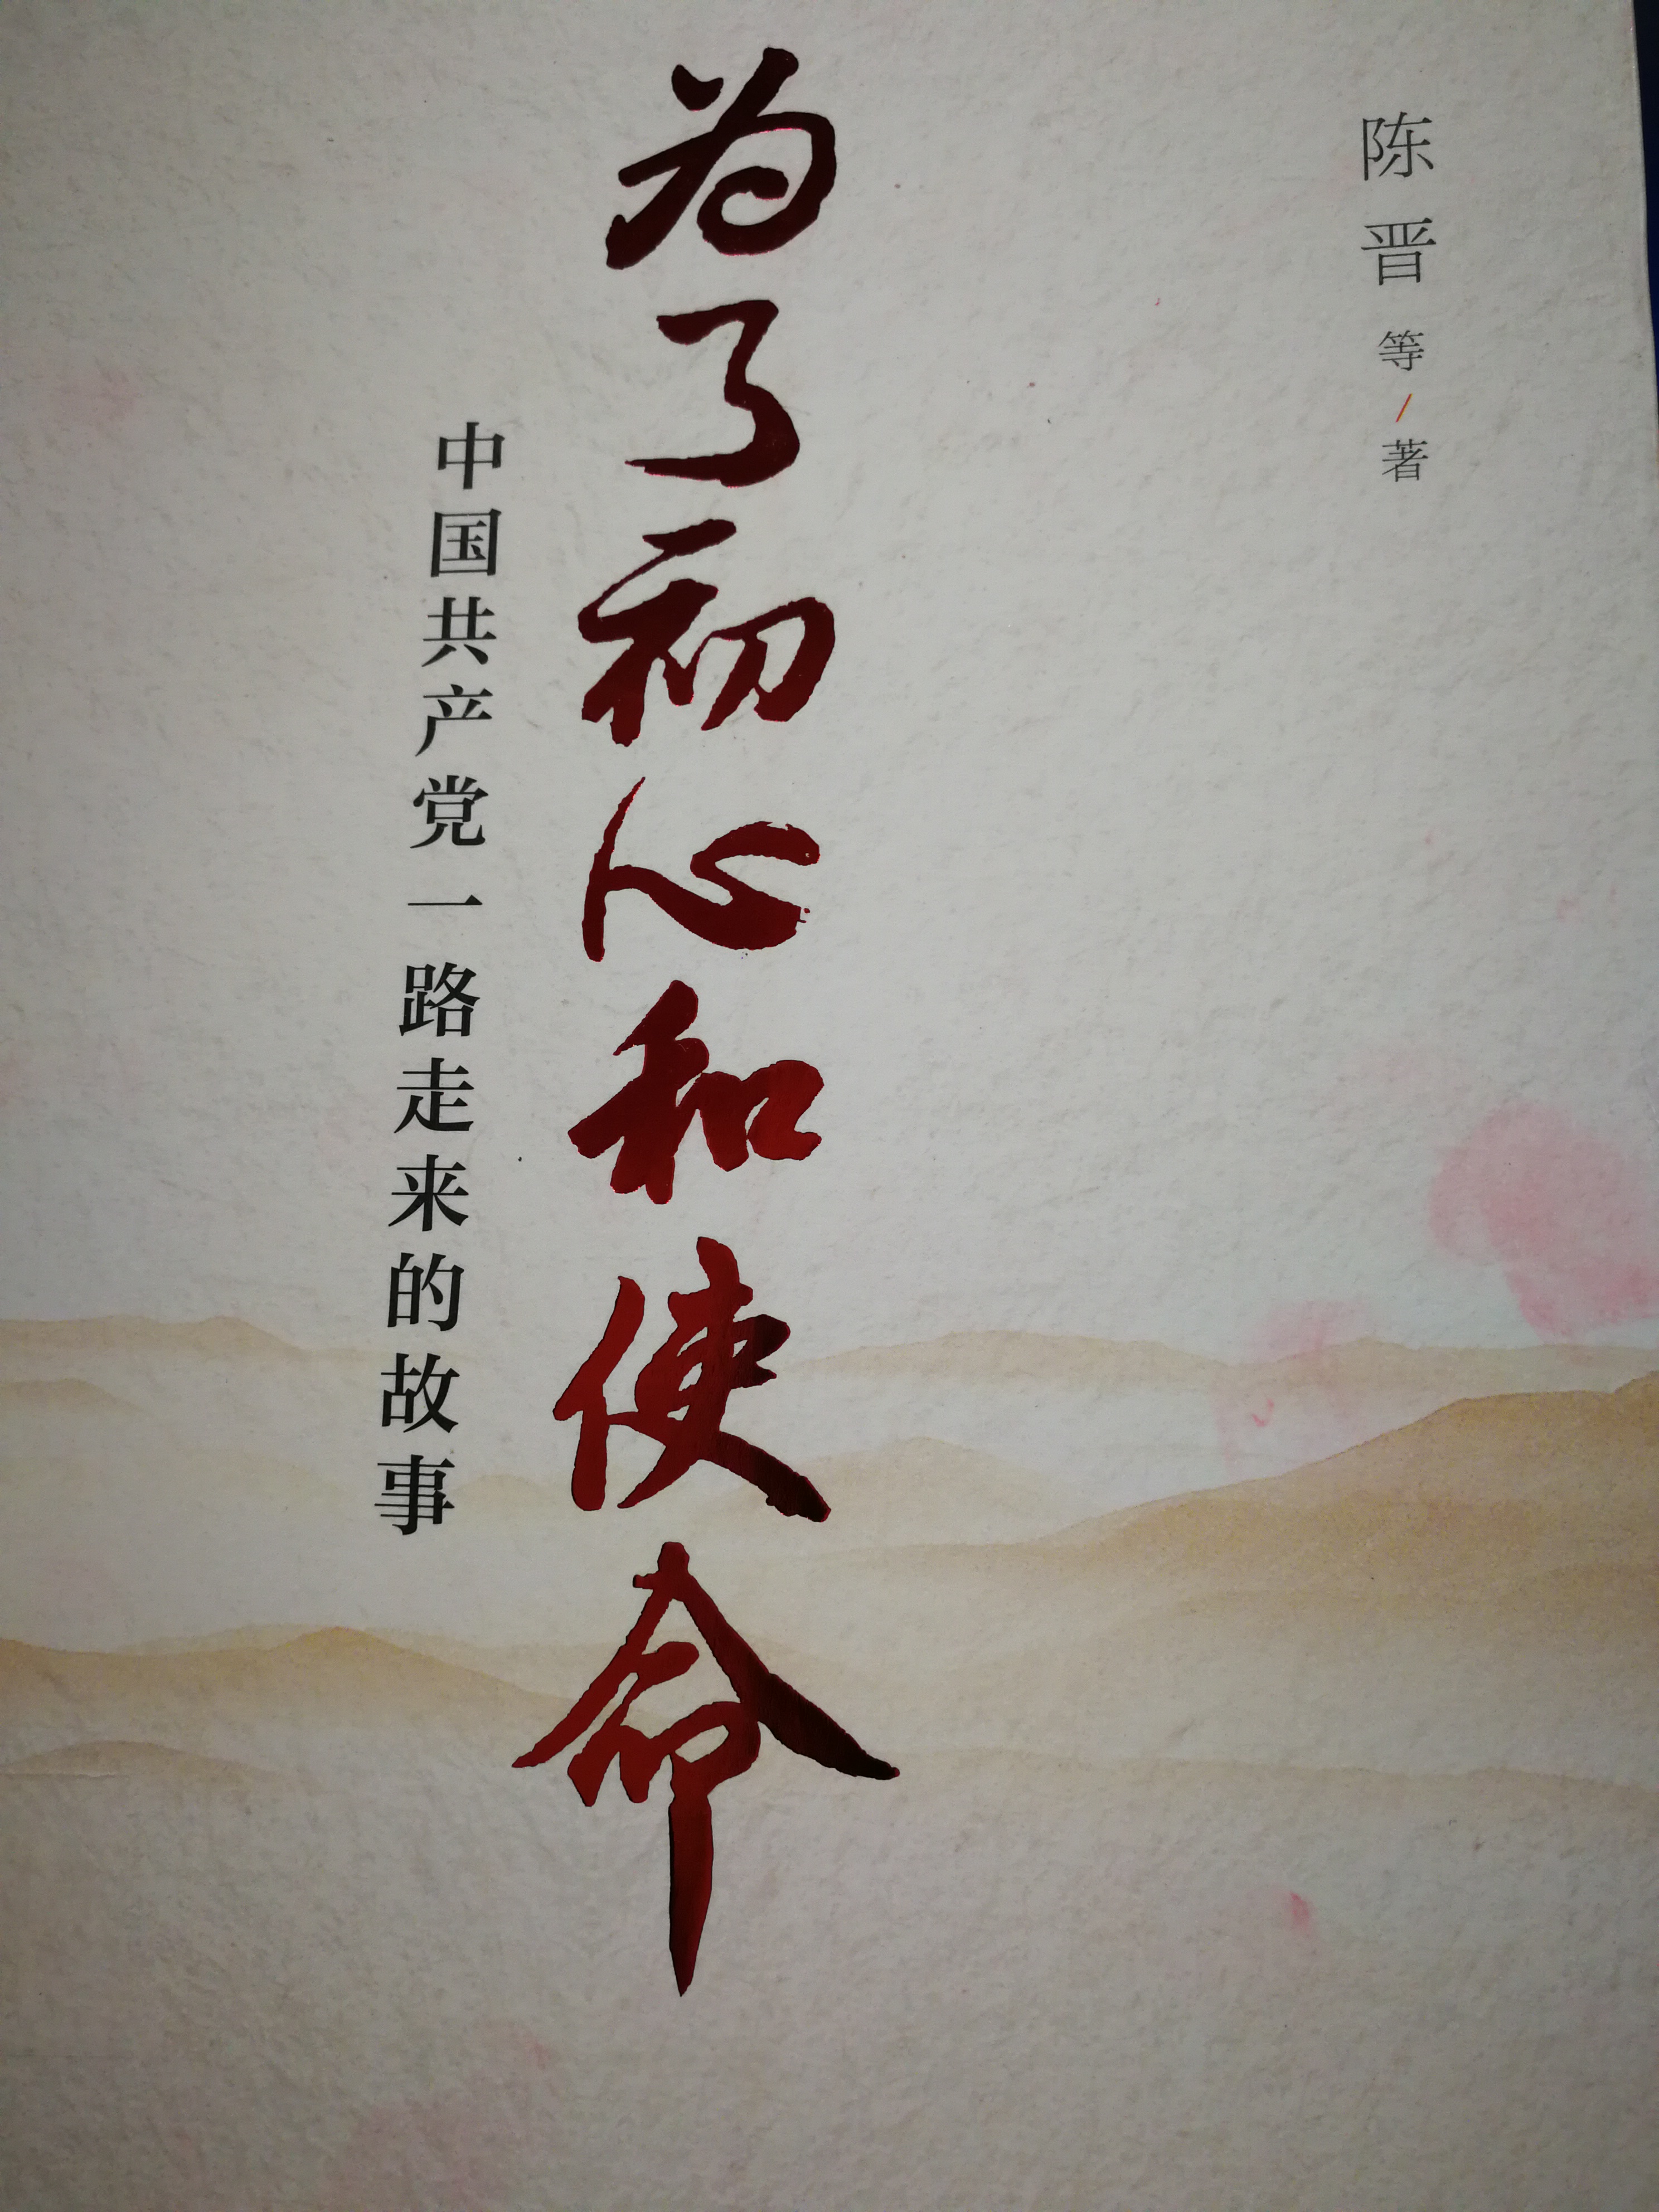 陈晋 等/著
为了初心和使命
中国共产党一路走来的故事